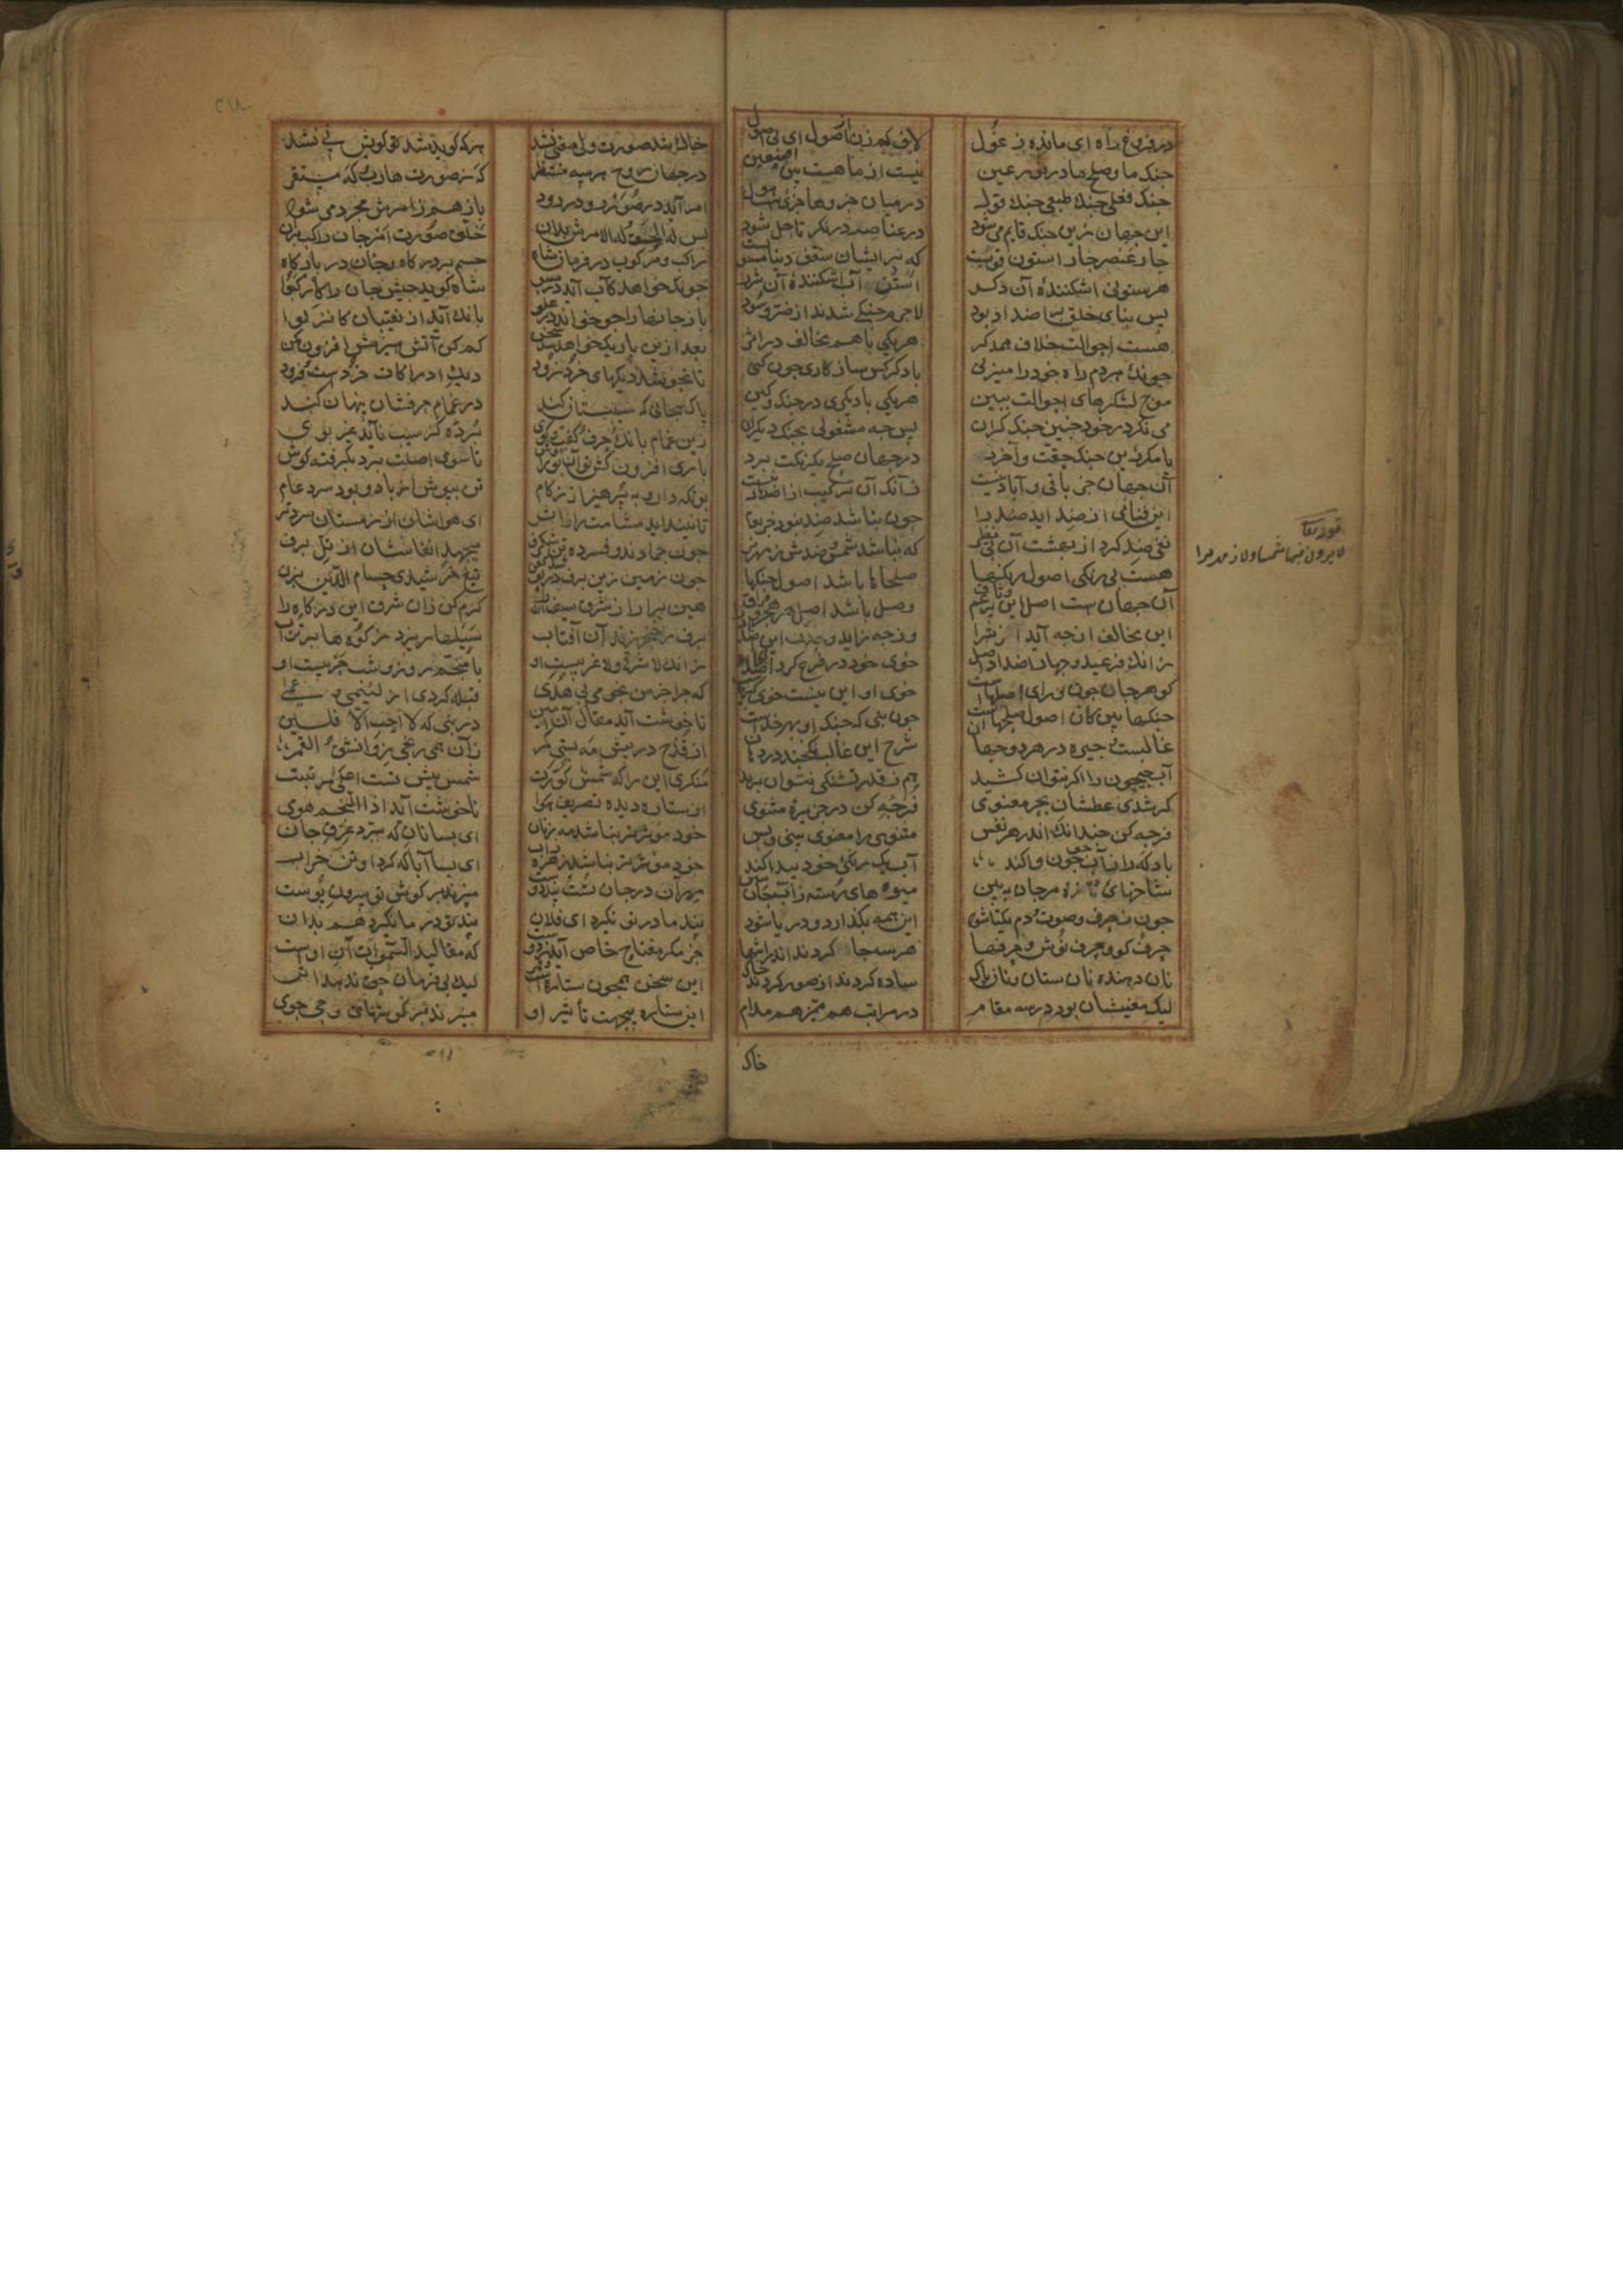 در فروغ راه ای مانده ز غول
لاف کم زن از اصول ای بی اصول
جنگ ما و صلح ما در نور عین
نیست از ما هست بین اصبعین
جنک فعلی جنک طبعی جنک قول
در میان جزوها حربی است هول
این جهان زین جنک قایم می شود
در عناصر در نکر تا حل شود
چار عنصر چار استون قویست
که بر ایشان سقف دنیا مستویست
هر ستونی اشکننده آن دکر
استن آب اشکننده آن شرر
پس بنای خلق بر اضداد بود
لاجرم جنکی شدند از ضر و سود
هست احوالت خلاف همدکر
هر یکی با هم مخالف در اثر
چونک هر دم راه خود را میزنی
با دکر کس سازکاری چون کنی
موج لشکرهای احوالت ببین
هر یکی با دیکری در جنک و کین
می نکر در خود چنین جنک کران
پس چه مشغولی بجنک دیکران
یا مکر زین جنک حقت واخرد
در جهان صلح یکرنکت برد
آن جهان جز باقی و آباد نیست
زآنک آن ترکیب از اضداد نیست
این تفانی از ضد آید ضد را
چون نباشد ضد نبود جز بقا
نفی ضد کرد از بهشت آن بی نظیر
که نباشد شمس و ضدش زمهریر
هست بی رنکی اصول رنکها
صلحها باشد اصول جنکها
آن جهانست اصل این پرغم وثاق
وصل باشد اصل هر هجر و فراق
این مخالف از چه آید از چه را
وز چه زاید وحدت این اضداد را
زانک ما فرعیم و چار اضداد اصل
خوی خود در فرع کرد ایجاد اصل
کوهر جان چون ورای فصلهاست
خوی او این نیست خوی کبریاست
جنکها بین کان اصول صلحهاست
چون نبی که جنک او بهر خداست
غالبست و چیره در هر دو جهان
شرح این غالب نکنجد در دهان
آب جیحون را اکر نتوان کشید
هم ز قدر تشنکی نتوان برید
کر شدی عطشان بحر معنوی
فرجه کن در جزیره مثنوی
فرجه کن چندانک اندر هر نفس
مثنوی را معنوی بینی و بس
باد که را ز آب جو چون وا کند
آب یک رنکی خود پیدا کند
شاخهای تازه مرجان ببین
میوه های رسته ز آب جان ببین
چون ز حرف و صوت و دم یکتا شود
این همه بکذارد و دریا شود
حرف کو و حرف نوش و حرفها
هر سه جان کردند اندر انتها
نان دهنده نان ستان و نان پاک
ساده کردند از صور کردند خاک
لیک معنیشان بود در سه مقام
در مراتب هم ممیز هم مدام
خاک
خاک شد صورت ولی معنی نشد
هر که کوید شد تو کویش نی نشد
در جهان روح هر سه منتظر
که ز صورت هارب و که مستقر
امر آید در صور رو در رود
باز هم ز امرش مجرد می شود
پس له الخلق و له الامرش بدان
خلق صورت امر جان راکب بران
راکب و مرکوب در فرمان شاه
جسم بر درکاه و جان در بارکاه
چونک خواهد کآب آید در سبو
شاه کوید جیش جان را کارکبوا
باز جانها را چو خواند در علو
بانک آید از نقیبان کانزلوا
بعد ازین باریک خواهد شد سخن
کم کن آتش هیزمش افزون مکن
تا نجوشد دیکهای خرد زود
دیک ادراکات خردست و فرود
پاک سبحانی که سیبستان کند
در غمام حرفشان پنهان کند
زین غمام بانک و حرف و کفت و کوی
پرده کز سیب ناید غیر بوی
باری افزون کش تو این بو را بهوش
تا سوی اصلت برد بکرفته کوش
بو نکه دار و بپرهیز از زکام
تن بپوش از باد و بود سرد عام
تا نینداید مشامت را ز اثر
ای هواشان از زمستان سردتر
چون جمادند و فسرده تن شکرف
میجهد انفاسشان از تل برف
چون زمین زین برف درپوشد کفن
تیغ خرشید حسام الدین بزن
هین برآر از شرق سیف الله را
کرم کن زان شرق این درکاه را
برف را خنجر زند آن آفتاب
سیلها ریزد ز کوه ها بر تراب
زانک لا شرقی و لا غربیست او
با منجم روز و شب حربیست او
که چرا جز من نجوم بی هدی
قبله کردی از لئیمی و عمی
تا خوشت آید مقال آن امین
در نبی که لا احب الافلین
از قزح در پیش مه بستی کمر
زان همی رنجی ز وانشق القمر
منکری این را که شمس کورت
شمس پیش تست اعلی مرتبت
از ستاره دیده تصریف هوا
ناخوشت آید اذا النجم هوی
خود مؤثرتر نباشد مه ز نان
ای بسا نان که ببرد عرق جان
خود مؤثرتر نباشد زهره ز آب
ای بسا آبا که کرد او تن خراب
مهر آن در جان تست و پند دوست
میزند بر کوش تو بیرون پوست
پند ما در تو نکیرد ای فلان
پند تو در ما نکیرد هم بدان
جز مکر مفتاح خاص آید ز دوست
که مقالید السموات آن اوست
این سخن همچون ستاره است و قمر
لیک بی فرمان حق ندهد اثر
این ستاره بی جهت تأثیر او
میزند بر کوشهای وحی جوی